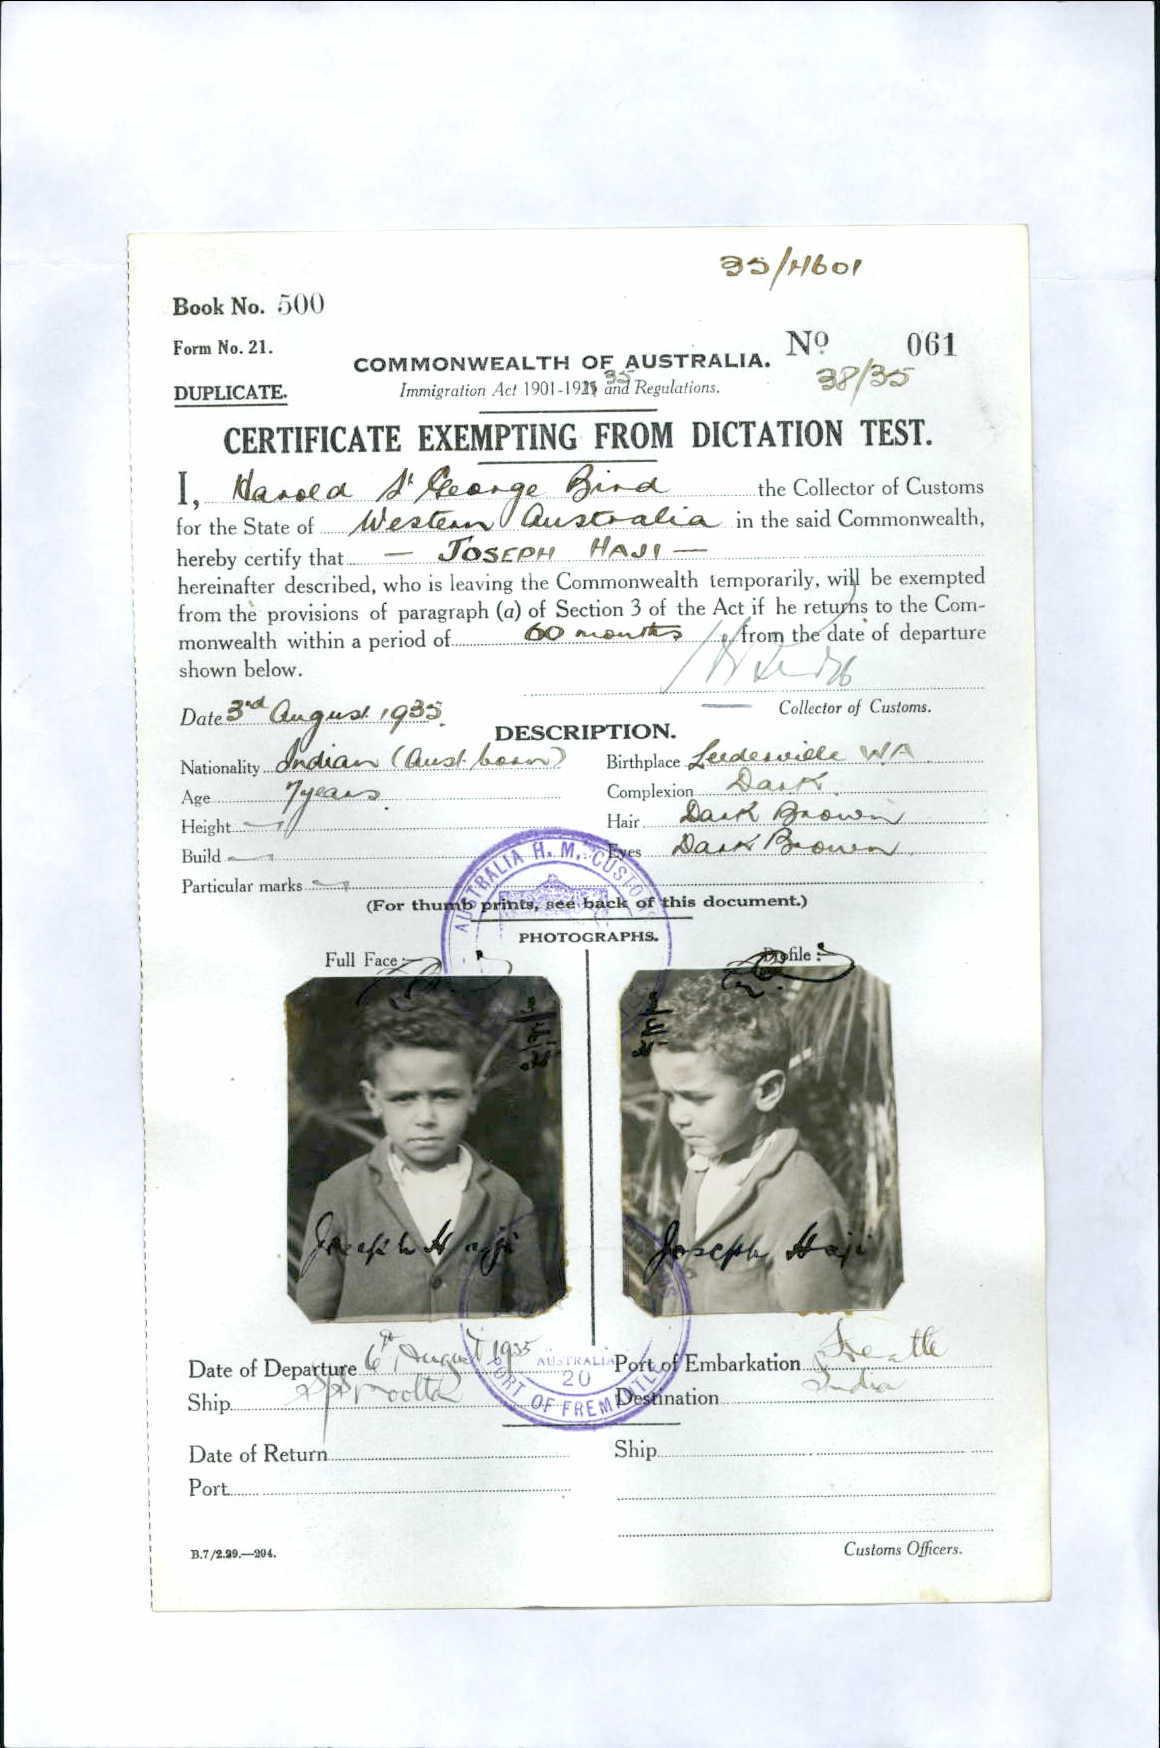 35/4601
Book No. 500
Form No. 21.
Nº 061
COMMONWEALTH OF AUSTRALIA.
38/35
DUPLICATE.
Immigration Act 1901-1925 35 and Regulations.
CERTIFICATE EXEMPTING FROM DICTATION TEST.
I, Harold St George Bird the Collector of Customs
for the State of Western Australia in the said Commonwealth,
hereby certify that — JOSEPH HAJI —
hereinafter described, who is leaving the Commonwealth temporarily, will be exempted
from the provisions of paragraph (a) of Section 3 of the Act if he returns to the Com-
monwealth within a period of 60 months from the date of departure
shown below.
Date 3rd August 1935
Collector of Customs.
DESCRIPTION.
Nationality Indian (Aust. born)
Birthplace Leederville WA
Age 7 years
Complexion Dark.
Height
Hair Dark Brown
Build
Eyes Dark Brown
Particular marks
(For thumb prints, see back of this document.)
AUSTRALIA H. M. CUSTOMS
PHOTOGRAPHS.
Full Face:
Profile:
Joseph Haji
Joseph Haji
Date of Departure 6th August 1935
Port of Embarkation F'mantle
Ship
Destination India
AUSTRALIA
20
PORT OF FREMANTLE
Date of Return
Ship
Port
B.7/2.29.—294.
Customs Officers.